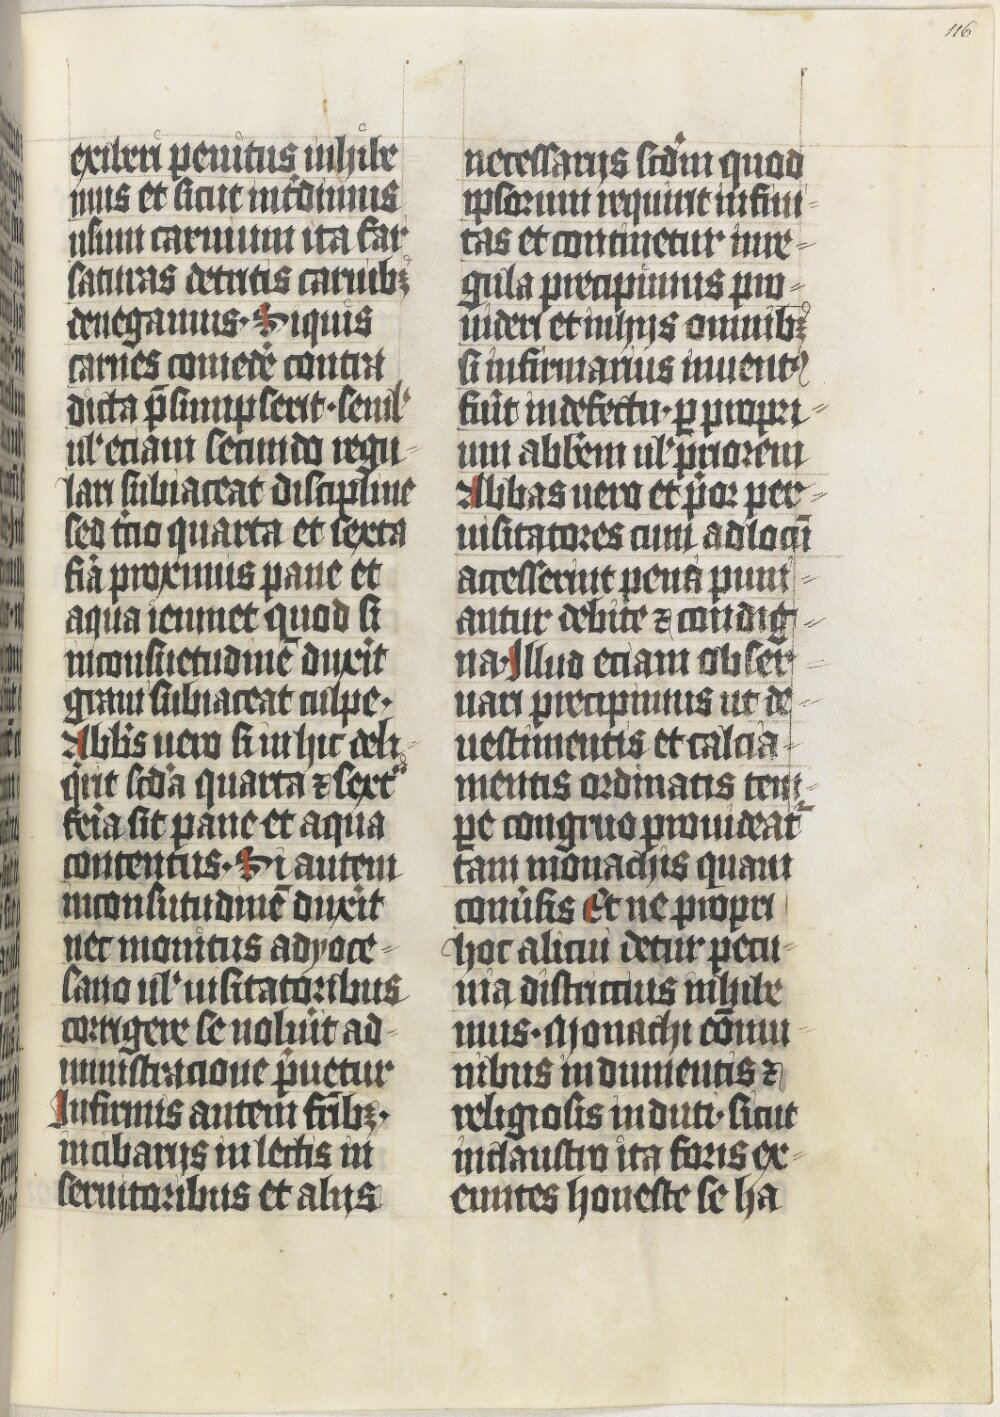 116
exiberi penitus inhibe
mus et sicut int̄dimus
usum carnium ita far
saturas detritis carnibꝫ
denegamus · Siquis
carnes comede᷑ contra
dicta p̄sumpserit · semĺ
uĺ etiam secundo regu-
lari subiaceat discipline
sed t̄cio quarta et sexta
fīa proximis pane et
aqua ieiunet quod si
inconsuetudinē dux᷑it
graui subiaceat culpe ·
Abb̄s uero si in hic deli
q̄rit scd̄a quarta ⁊ sexta
feria sit pane et aqua
contentus · Si autem
inconsutudinē dux᷑it
nec monitus adyoce-
sano uĺ uisitatoribus
corrigere se uolūit ad-
ministracione p̄uetur
Infirmis autem fr̄ibꝫ ·
incibarijs in lectis in
seruitoribus et alijs
necessarijs scd̄m quod
ipsorum requirit infirmi-
tas et continetur inre-
gula precipimus pro-
uideri et inhijs omnibꝫ
si infirmarius inuentꝰ
fūit indefectu · ꝑ propri-
um abb̄em uĺ priorem
Abbas uero et p̄or per-
uisitatores cum ad locū
accesserint pena puni-
antur debite ⁊ condig-
na · Illud eciam obser-
uari precipimus ut de-
uestimentis et calcia-
mentis ordinatis tem-
ꝑe congruo prouideat᷑
tam monachis quam
conūsis Et ne propri
hoc alicui detur pecu-
nia districtius inhibe
mus · Monachi cōmu-
nibus indumentis ⁊
religiosis induti · sicut
inclaustro ita foris ex-
euntes honeste se ha